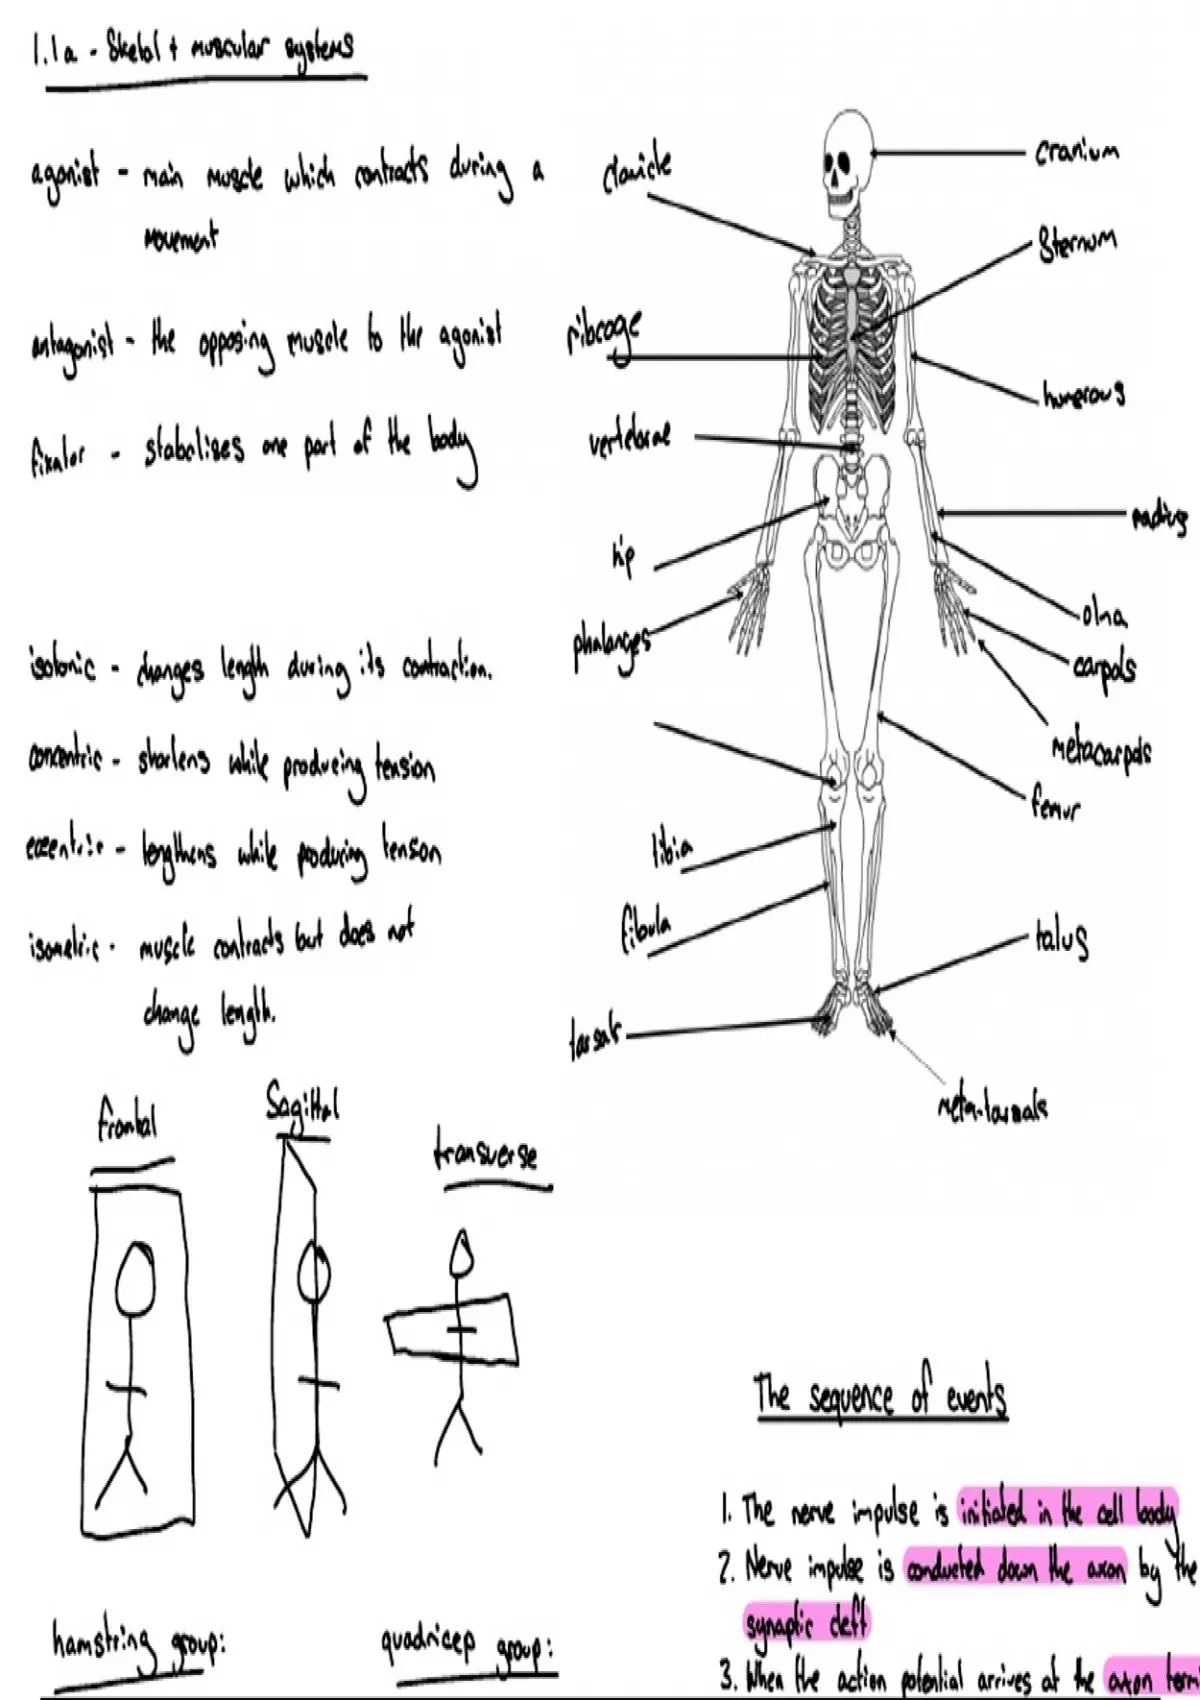 1.1a - Skeletal + muscular systems
agonist - main muscle which contracts during a
movement
antagonist - the opposing muscle to the agonist
fixator - stabalises one part of the body
isotonic - changes length during its contraction.
concentric - shortens while producing tension
eccentric - lengthens while producing tension
isometric - muscle contracts but does not
change length.
clavicle
ribcage
vertebrae
hip
phalanges
tibia
fibula
tarsals
cranium
Sternum
humerous
radius
ulna
carpals
metacarpals
femur
talus
meta-tarsals
frontal
Sagittal
transverse
hamstring group:
quadricep group:
The sequence of events
1. The nerve impulse is initiated in the cell body
2. Nerve impulse is conducted down the axon by the
synaptic cleft
3. When the action potential arrives at the axon